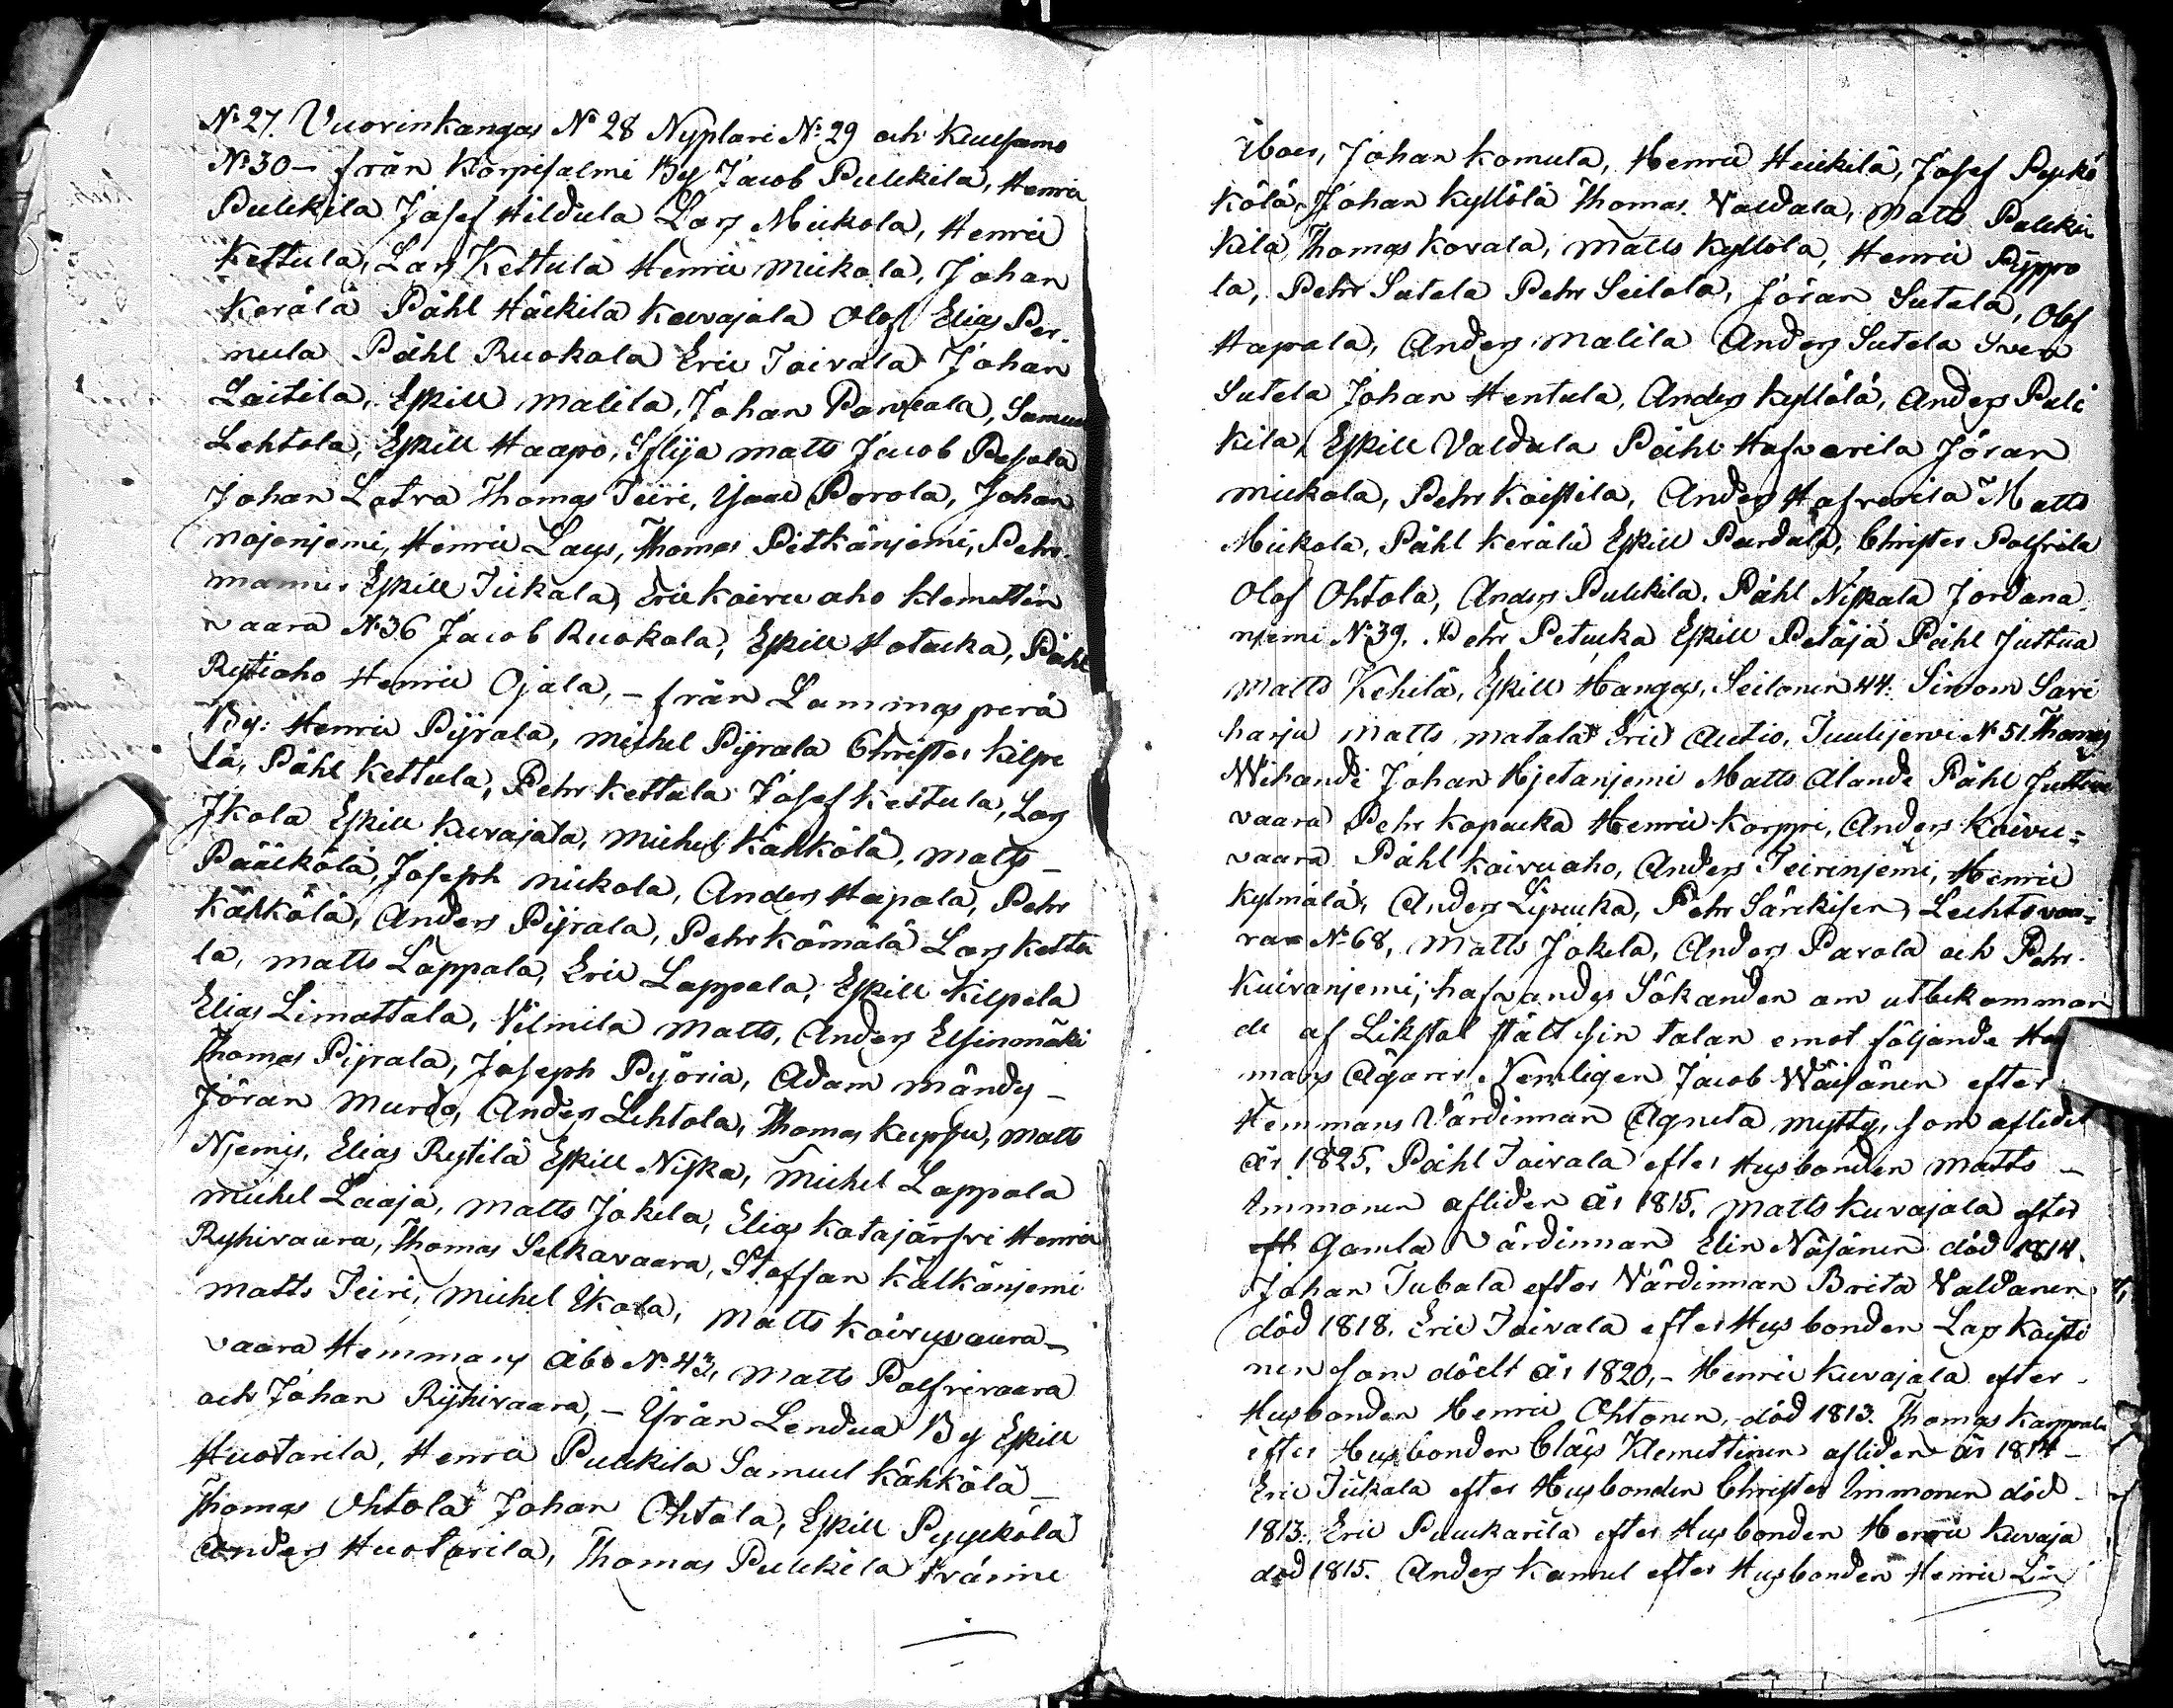 No 27. Vuorinkangas No 28 Nyplari No 29 och Kuusamo
No 30 – från Korpisalmi By Jacob Pulckila, Henric
Pulckila Josef Hildula Lars Mickola, Henric
Kettula, Lars Kettula Henric Mickola, Johan
Kerälä Påhl Häikila Kuvajala Olof Elias Per-
mula Påhl Ruokola Eric Toivala Johan
Laitila, Eskill Malila, Johan Parviala, Samuel
Lehtola, Eskill Haapo, Matts Jacob Pesola
Johan Latva Thomas Teiri, Isaac Porola, Johan
Mojenjemi, Henric Lays, Thomas Pitkänjemi, Pehr
Mannes Eskill Tickala, Eric Koivu aho Klemettin
vaara No 36 Jacob Ruokola, Eskill Hotucka, Påhl
Rytioho Henric Ojala, – från Lammasperä
By: Henric Pijrala, Michel Pijrala Christer Kilpe
lä, Påhl Kettula, Pehr Kettula Josef Kettula, Lars
Ikola Eskill Kuvajala, Michel Kähkölä, Matts –
Pääckölä, Joseph Mickola, Anders Hapala, Pehr
Kähkölä, Anders Pijrala, Pehr Kömälä Lars Kettu
la, Matts Lappala, Eric Lappala, Eskill Kilpela
Elias Limattala, Vilmila Matts, Anders Elsinmäki
Thomas Pijrala, Joseph Pyöria, Adam Mändy –
Jöran Murdo, Anders Lehtola, Thomas Kuppu, Matts
Njemis, Elias Rytilä Eskill Niska, Michel Lappala
Michel Laaja, Matts Jokela, Elias Katajärfvi Henric
Ryhivaara, Thomas Selkavaara, Staffan Kälkänjemi
Matts Teiri, Michel Ikola, Matts Koivuvaara –
vaara Hemmans Åbo No 43, Matts Palfvivaara
och Johan Ryhivaara, – Ifrån Lendua By Eskill
Huotarila, Henric Pulckila Samuel Kähkölä –
Thomas Ohtola Johan Ohtola, Eskill Pyyckölä
Anders Huotarila, Thomas Pulckila tvänne
Iboer, Johan Komula, Henric Heickilä, Josef Pyckö
kölä, Johan Kyllölä Thomas Valdala, Matts Pulcki
kila Thomas Kovala, Matts Kyllölä, Henric Pyppo
la, Pehr Sutela Pehr Seilola, Jöran Sutela, Olof
Hapala, Anders Malila Anders Sutela Sven
Sutela Johan Hentula, Anders Kyllölä, Anders Pulc
kila, Eskill Valdala Påhl Hafverila Jöran
Mickola, Pehr Kaistila, Anders Hafverila Matts
Mickola, Påhl Kerälä Eskill Pardala, Christer Palfvila
Olof Ohtola, Anders Pulckila, Påhl Niskala Jordana
njemi No 39. Pehr Petucka Eskill Petäjä Påhl Juttua
Matts Kehilä, Eskill Hangas, Seilonen 44. Simom Sari
harju Matts Matola Eric Autio, Tuulijervi No 51. Thomas
Wihandi Johan Hjetanjemi Matts Alande Påhl Juttua
vaara Pehr Kopucka Henric Korppi, Anders Koivu=
vaara Påhl Koivuaho, Anders Teirinjemi, Henric
Kylmälä, Anders Lipucka, Pehr Särckisen, Lechtovaa=
ra No 68, Matts Jokela, Anders Parola och Pehr
Kuivanjemi; hafvandes Sökanden om utbekomman
de af Likstol stält sin talan emot följande
mans Ägarer Nemligen Jacob Wäisänen efter
Hemmans Värdinnan Agneta Mytty, som aflidit
år 1825. Påhl Toivala efter Husbonden Matts –
Immonen afliden år 1815. Matts Kuvajala efter
eft Gamla Värdinnan Elin Näsänen död 1814.
Johan Tubala efter Värdinnan Brita Valdanen
död 1818. Eric Toivala efter Husbonden Lars Kaisti
nen som dödt år 1820, – Henric Kuvajala efter
Husbonden Henric Ohtonen, död 1813. Thomas Karppala
efter Husbonden Clas Klemettinen afliden år 1814 –
Eric Tickala efter Husbonden Christer Immonen död
1813. Eric Puuckarila efter Husbonden Henric Kuvaja
död 1815. Anders Kamul efter Husbonden Henric Lin